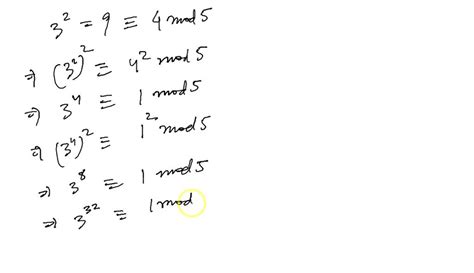 3² = 9 ≡ 4 mod 5
⇒ (3²)² ≡ 4² mod 5
⇒ 3⁴ ≡ 1 mod 5
⇒ (3⁴)² ≡ 1² mod 5
⇒ 3⁸ ≡ 1 mod 5
⇒ 3³² ≡ 1 mod